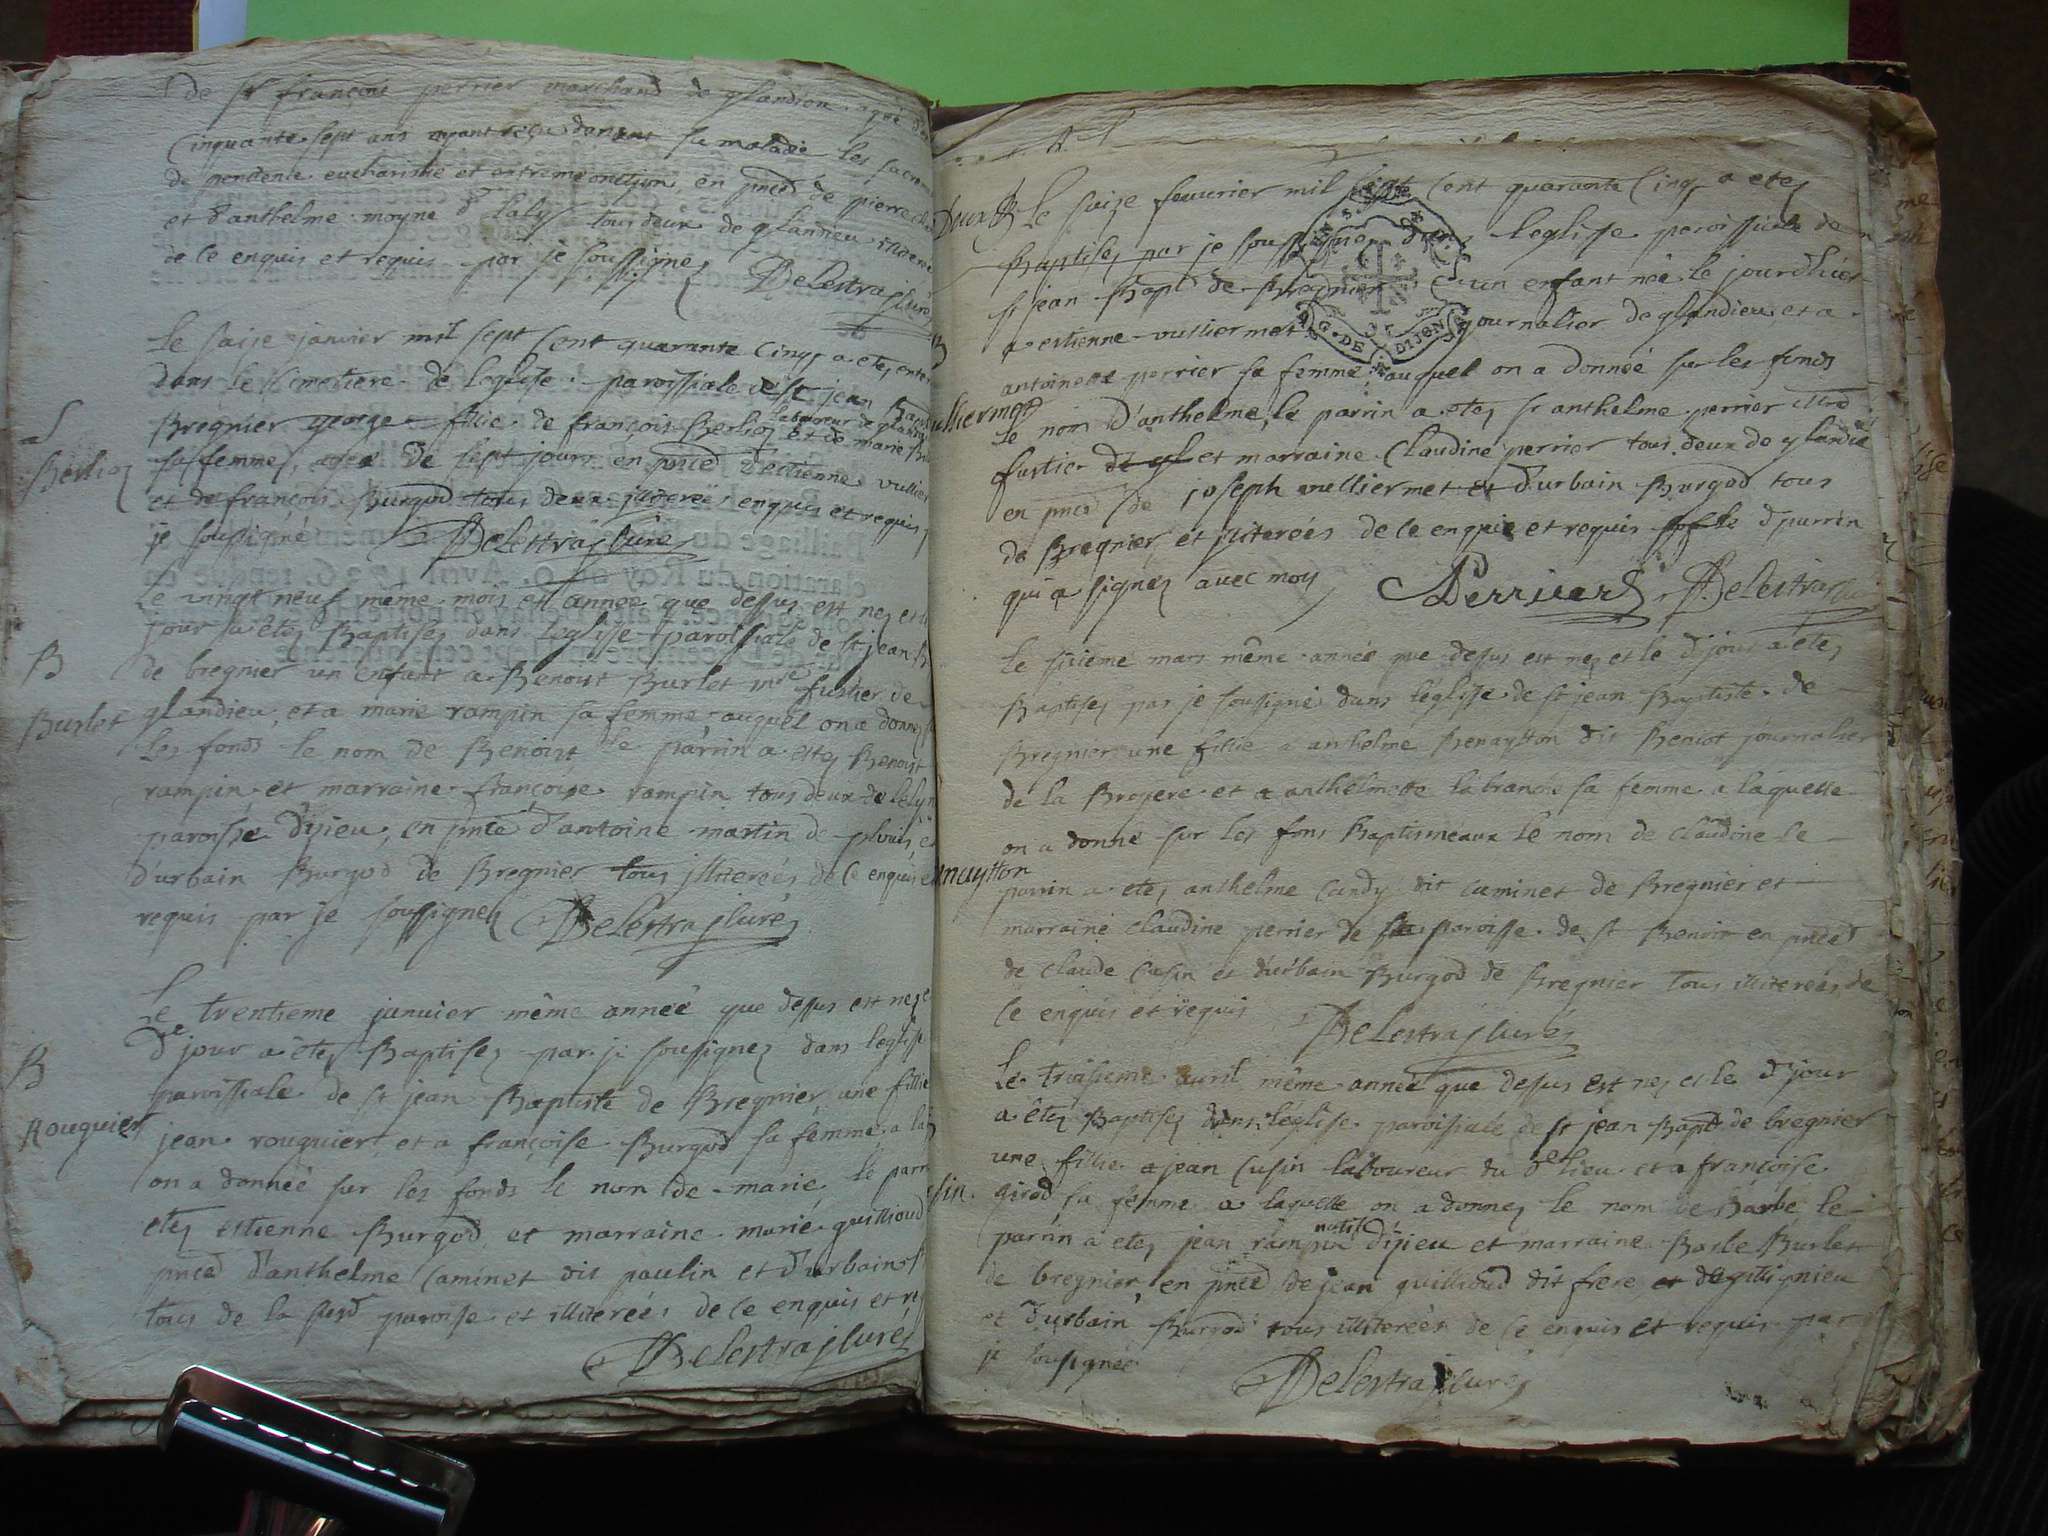 de sr françois perrier marchand de glandieu agee de
Cinquante sept ans ayant reçu durant sa maladie les sacre
de penitente eucharistie et extremeonction en pnced de pierre
et d'anthelme moyne dt laly tous deux de glandieu illiteré
de ce enquis et requis par je soussignez Delestraz Curéz
le saize janvier mil sept cent quarante cinq a etez enter
dans le cimetiere de leglise paroissiale de st jean Bapt
Bregnier george fillie de françois Berlioz laboureur de gland et de marie
sa femme, agée de sept jours en pnced d'estienne vullier
et de françois Burgod tous deux illitereés enquis et requis
je soussigné Delestraz Curéz
Berlioz
le vingt neuf même mois et année que dessus est nez et le
jour a etez Baptisez dans leglise paroissiale de st jean B
de bregnier un enfant a Benoist Burlet mre fustier de
glandieu, et a marie rampin sa femme auquel on a donnez
les fonds le nom de Benoist le parrin a etez Benoist
rampin et marraine françoise rampin tous deux de
paroisse d'izieu, en pnce d'antoine martin de
d'urbain Burgod de Bregnier tous illitereés de ce enquis
requis par je soussignez Delestraz Curéz
B
Burlet
Le trentieme janvier même année que dessus est nez
dt jour a êtez Baptisez par je soussignez dans leglise
paroissiale de st jean Baptiste de Bregnier une fillie
jean rouguier, et a françoise Burgod sa femme a la
on a donneé sur les fonds le nom de marie le parr
etez estienne Burgod et marraine marie guillioud
pnced d'anthelme Caminet dit paulin et d'urbain
tous de la susd paroisse et illitereés de ce enquis et r
Delestraz Curéz
B
Rouguier
Le saize fevvrier mil sept cent quarante Cinq a etez
Baptisez par je soussigné dans leglise paroissiale de
st jean Bapt de Bregnier un enfant née le jour d'hier
a estienne vulliermet journalier de glandieu, et a
antoinette perrier sa femme, auquel on a donneé sur les fonds
le nom d'anthelme, le parrin a etez sr anthelme perrier
fustier de gl et marraine Claudine perrier tous deux de glandie
en pnced de joseph vulliermet et d'urbain Burgod tous
de Bregnier et illitereés de ce enquis et requis d parrin
qui a signez avec moy Perrier Delestraz Cu
G. DE DIJON
le sixieme mars même année que dessus est nez et le dt jour a étez
Baptisez par je soussigné dans léglise de st jean Baptiste de
Bregnier une fillie a anthelme Benaytton dit Beniot journalier
de la Bruyere et a anthelmette labranche sa femme a laquelle
on a donné sur les fons Baptismeaux le nom de claudine le
parrin a etez anthelme Candy dit caminet de Bregnier et
marraine claudine perrier de la paroisse de st Benoit en pnced
de claude Cusin et d'urbain Burgod de Bregnier tous illitereés de
ce enquis et requis Delestraz Curéz
naytton
le troisieme avril même année que dessus est nez et le dt jour
a étez Baptisez dans léglise paroissiale de st jean Bapt de bregnier
une fillie a jean Cusin laboureur du dt lieu et a françoise
girod sa femme a laquelle on a donnez le nom de Barbe le
parrin a etez jean rampin natif d'izieu et marraine Barbe Burlet
de bregnier, en pnced de jean guillioud dit frere et de gillignieu
et d'urbain Burgod tous illitereés de ce enquis et requis par
je sousignée Delestraz Curéz
sin.